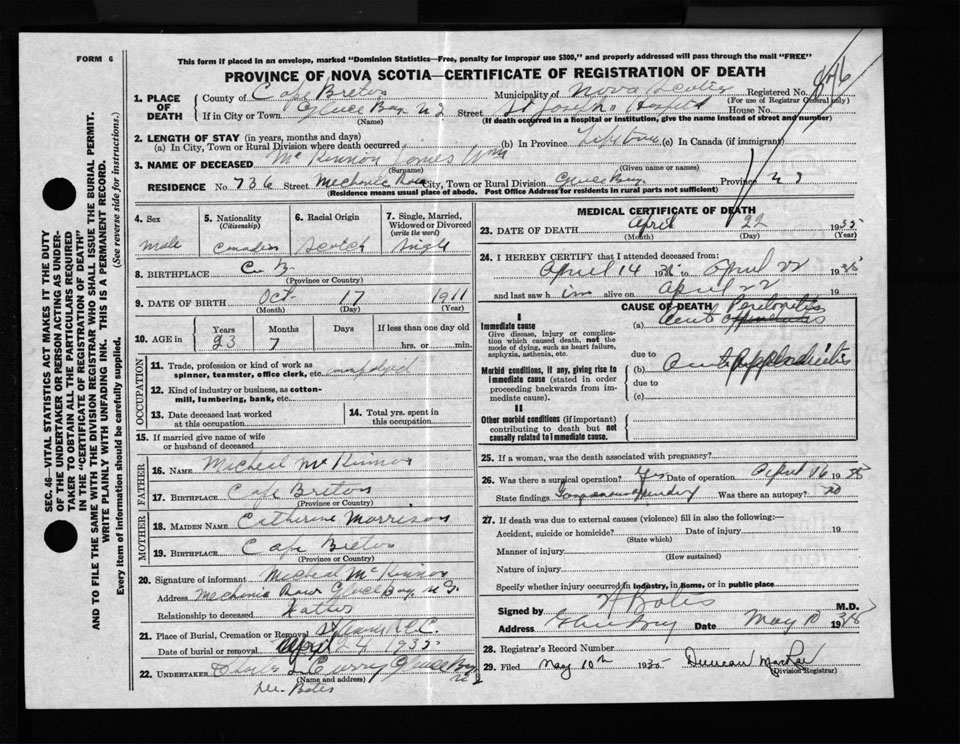 FORM 6
This form if placed in an envelope, marked "Dominion Statistics—Free, penalty for improper use $300," and properly addressed will pass through the mail "FREE"
PROVINCE OF NOVA SCOTIA—CERTIFICATE OF REGISTRATION OF DEATH
1. PLACE OF DEATH
County of Cape Breton Municipality of Nova Scotia Registered No.
(For use of Registrar General only)
If in City or Town Glace Bay N S Street St Joseph's Hospital House No.
(Name) (If death occurred in a Hospital or Institution, give the name instead of street and number)
2. LENGTH OF STAY (in years, months and days)
(a) In City, Town or Rural Division where death occurred (b) In Province Lifetime (c) In Canada (if immigrant)
3. NAME OF DECEASED McKinnon James Wm
(Surname) (Given name or names)
RESIDENCE No. 736 Street Mechanic Row City, Town or Rural Division Glace Bay Province N S
(Residence means usual place of abode. Post Office Address for residents in rural parts not sufficient)
4. Sex Male
5. Nationality (Citizenship) Canadian
6. Racial Origin Scotch
7. Single, Married, Widowed or Divorced (write the word) Single
8. BIRTHPLACE C. B.
(Province or Country)
9. DATE OF BIRTH Oct 17 1911
(Month) (Day) (Year)
10. AGE in Years 23 Months 7 Days If less than one day old
hrs. or min.
OCCUPATION
11. Trade, profession or kind of work as spinner, teamster, office clerk, etc.
12. Kind of industry or business, as cotton-mill, lumbering, bank, etc.
13. Date deceased last worked at this occupation
14. Total yrs. spent in this occupation
15. If married give name of wife or husband of deceased
FATHER
16. NAME Micheal McKinnon
17. BIRTHPLACE Cape Breton
(Province or Country)
MOTHER
18. MAIDEN NAME Catherine Morrison
19. BIRTHPLACE Cape Breton
(Province or Country)
20. Signature of informant Micheal McKinnon
Address Mechanic Row Glace Bay N S.
Relationship to deceased Father
21. Place of Burial, Cremation or Removal
Date of burial or removal April 24 1935
22. UNDERTAKER Charles Curry Glace Bay
(Name and address) N S
Dr. Bates
MEDICAL CERTIFICATE OF DEATH
23. DATE OF DEATH April 22 1935
(Month) (Day) (Year)
24. I HEREBY CERTIFY that I attended deceased from:
April 14 1935 to April 22 1935
and last saw him alive on April 22 19
CAUSE OF DEATH
I
Immediate cause
Give disease, injury or complication which caused death, not the mode of dying, such as heart failure, asphyxia, asthenia, etc.
(a) Peritonitis
Acute Appendicitis
due to
Morbid conditions, if any, giving rise to immediate cause (stated in order proceeding backwards from immediate cause).
(b) Acute Appendicitis
due to
(c)
II
Other morbid conditions (if important) contributing to death but not causally related to immediate cause.
25. If a woman, was the death associated with pregnancy?
26. Was there a surgical operation? Yes Date of operation April 16 1935
State findings Gangrenous Appendix Was there an autopsy? No
27. If death was due to external causes (violence) fill in also the following:—
Accident, suicide or homicide? Date of injury 19
(State which)
Manner of injury
(How sustained)
Nature of injury
Specify whether injury occurred in industry, in home, or in public place
Signed by Bates M.D.
Address Glace Bay Date May 10 1935
28. Registrar's Record Number
29. Filed May 10th 1935 Duncan
(Division Registrar)
SEC. 46—VITAL STATISTICS ACT MAKES IT THE DUTY
OF THE UNDERTAKER OR PERSON ACTING AS UNDER-
TAKER TO OBTAIN ALL THE PARTICULARS REQUIRED
IN THE "CERTIFICATE OF REGISTRATION OF DEATH"
AND TO FILE THE SAME WITH THE DIVISION REGISTRAR WHO SHALL ISSUE THE BURIAL PERMIT.
WRITE PLAINLY WITH UNFADING INK. THIS IS A PERMANENT RECORD.
Every item of information should be carefully supplied. (See reverse side for instructions.)